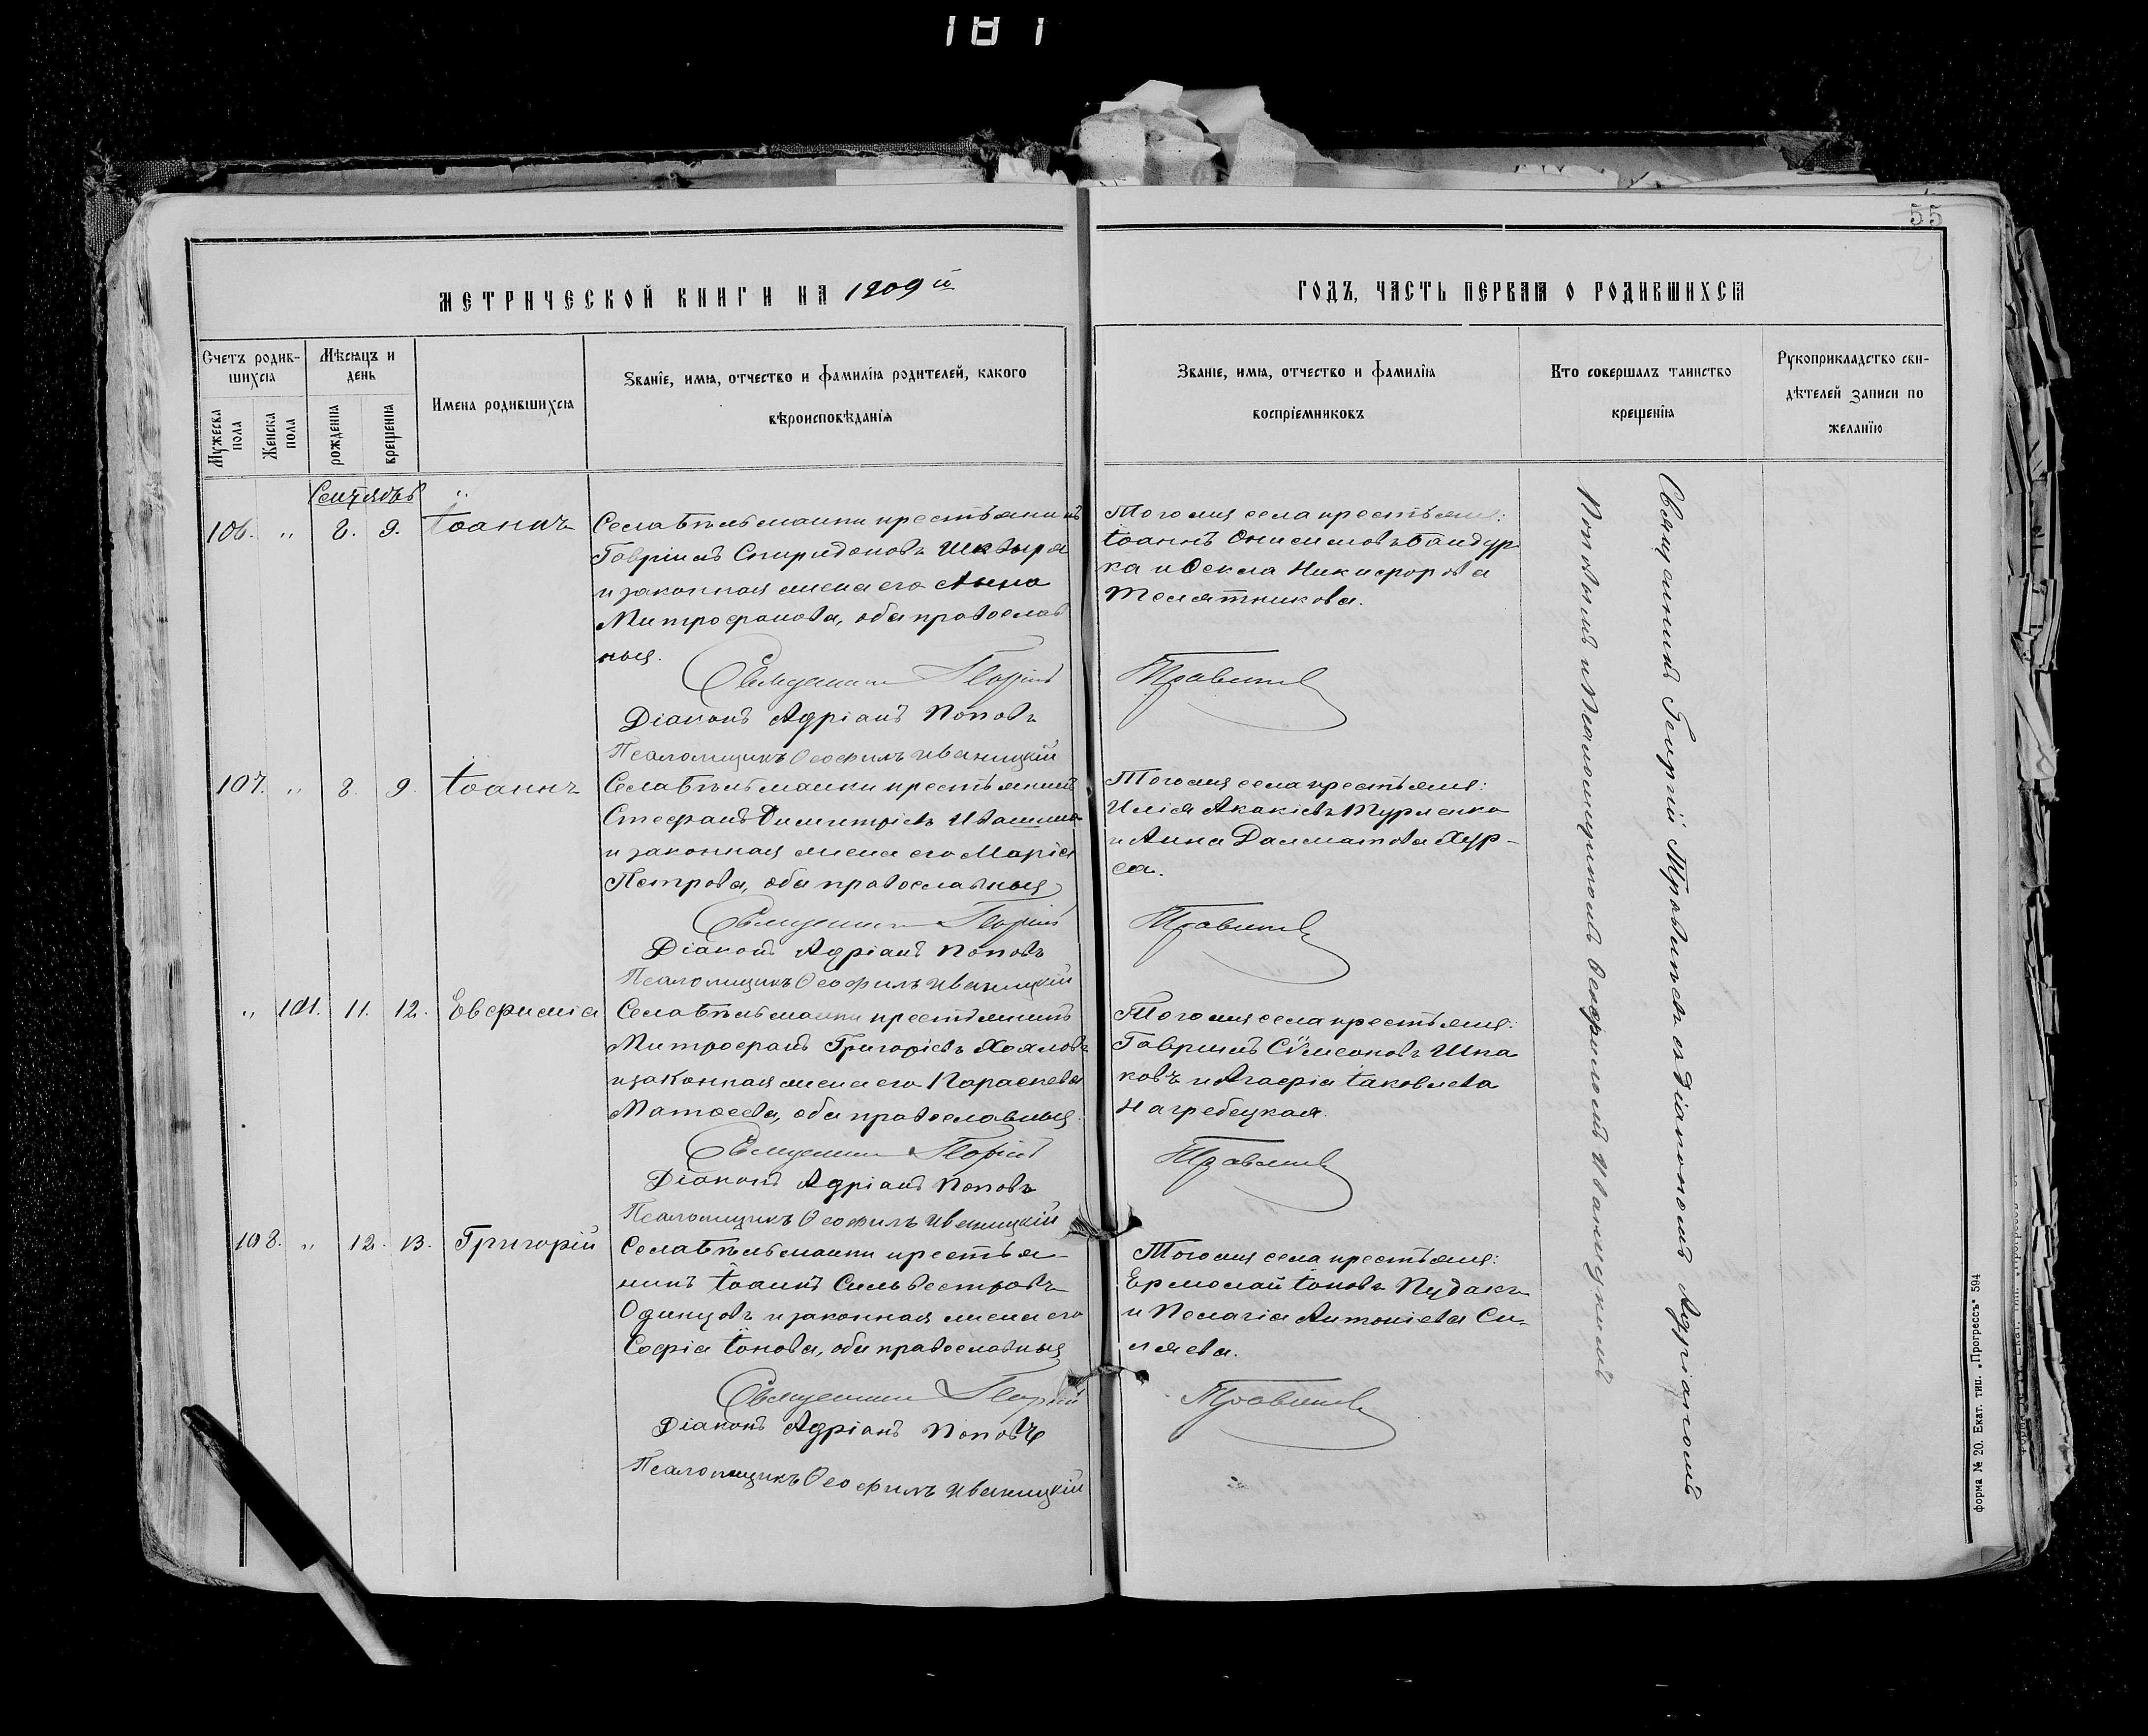 181
55
МЕТРИЧЕСКОЙ КНИГИ НА 1909й
ГОДЪ, ЧАСТЬ ПЕРВАЯ О РОДИВШИХСЯ
Счетъ родив-
шихся
Мѣсяцъ и
день
Мужеска
пола
Женска
пола
рожденія
крещенія
Имена родившихся
Званіе, имя, отчество и фамилія родителей, какого
вѣроисповѣданія
Званіе, имя, отчество и фамилія
воспріемниковъ
Кто совершалъ таинство
крещенія
Рукоприкладство сви-
дѣтелей записи по
желанію
Сентябрь
106. „ 8. 9. Іоаннъ
Села Бѣльманки крестьянинъ
Гавріилъ Спиридоновъ Шквыря
и законная жена его Анна
Митрофанова, оба православ
ныя.
Священникъ Георгій
Діаконъ Адріанъ Поповъ
Псаломщикъ Ѳеофилъ Иваницкій
Того же села крестьяне:
Іоаннъ Онисимовъ Бандур
ка и Ѳекла Никифорова
Телятникова.
Правитель
107. „ 8. 9. Іоаннъ
Села Бѣльманки крестьянинъ
Стефанъ Димитріевъ Ивашина
и законная жена его Марія
Петрова, оба православныя
Священникъ Георгій
Діаконъ Адріанъ Поповъ
Псаломщикъ Ѳеофилъ Иваницкій
Того же села крестьяне:
Илія Акакіевъ Турленко
и Анна Далматова Хур-
са.
„ 101. 11. 12. Евфимія
Села Бѣльманки крестьянинъ
Митрофанъ Григоріевъ Хояловъ
и законная жена его Параскева
Матѳеева, оба православныя.
Священникъ Георгій
Діаконъ Адріанъ Поповъ
Псаломщикъ Ѳеофилъ Иваницкій
Того же села крестьяне:
Гавріилъ Сѵмеоновъ Шпа
ковъ и Агафія Іаковлева
Нагребецкая.
108. „ 12. 13. Григорій
Села Бѣльманки крестья-
нинъ Іоаннъ Сильвестровъ
Одинцовъ и законная жена его
Софія Іонова, оба православныя
Священникъ Георгій
Діаконъ Адріанъ Поповъ
Псаломщикъ Ѳеофилъ Иваницкій
Того же села крестьяне:
Ермолай Іоновъ Пудакъ
и Пелагія Антоніева Си-
ляева.
Священникъ Георгій съ діакономъ Адріаномъ
Поповымъ и псаломщикомъ Ѳеофиломъ Иваницкимъ
форма № 20. Екат. тип. „Прогрессъ“ 594